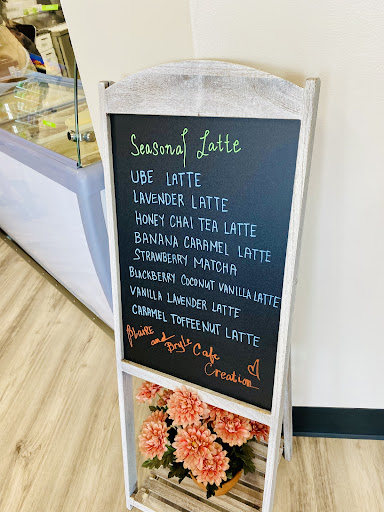 Seasonal Latte
UBE LATTE
LAVENDER LATTE
HONEY CHAI TEA LATTE
BANANA CARAMEL LATTE
STRAWBERRY MATCHA
BLACKBERRY COCONUT VANILLA LATTE
VANILLA LAVENDER LATTE
CARAMEL TOFFEENUT LATTE
Blaire and Bryle Cafe
Creation